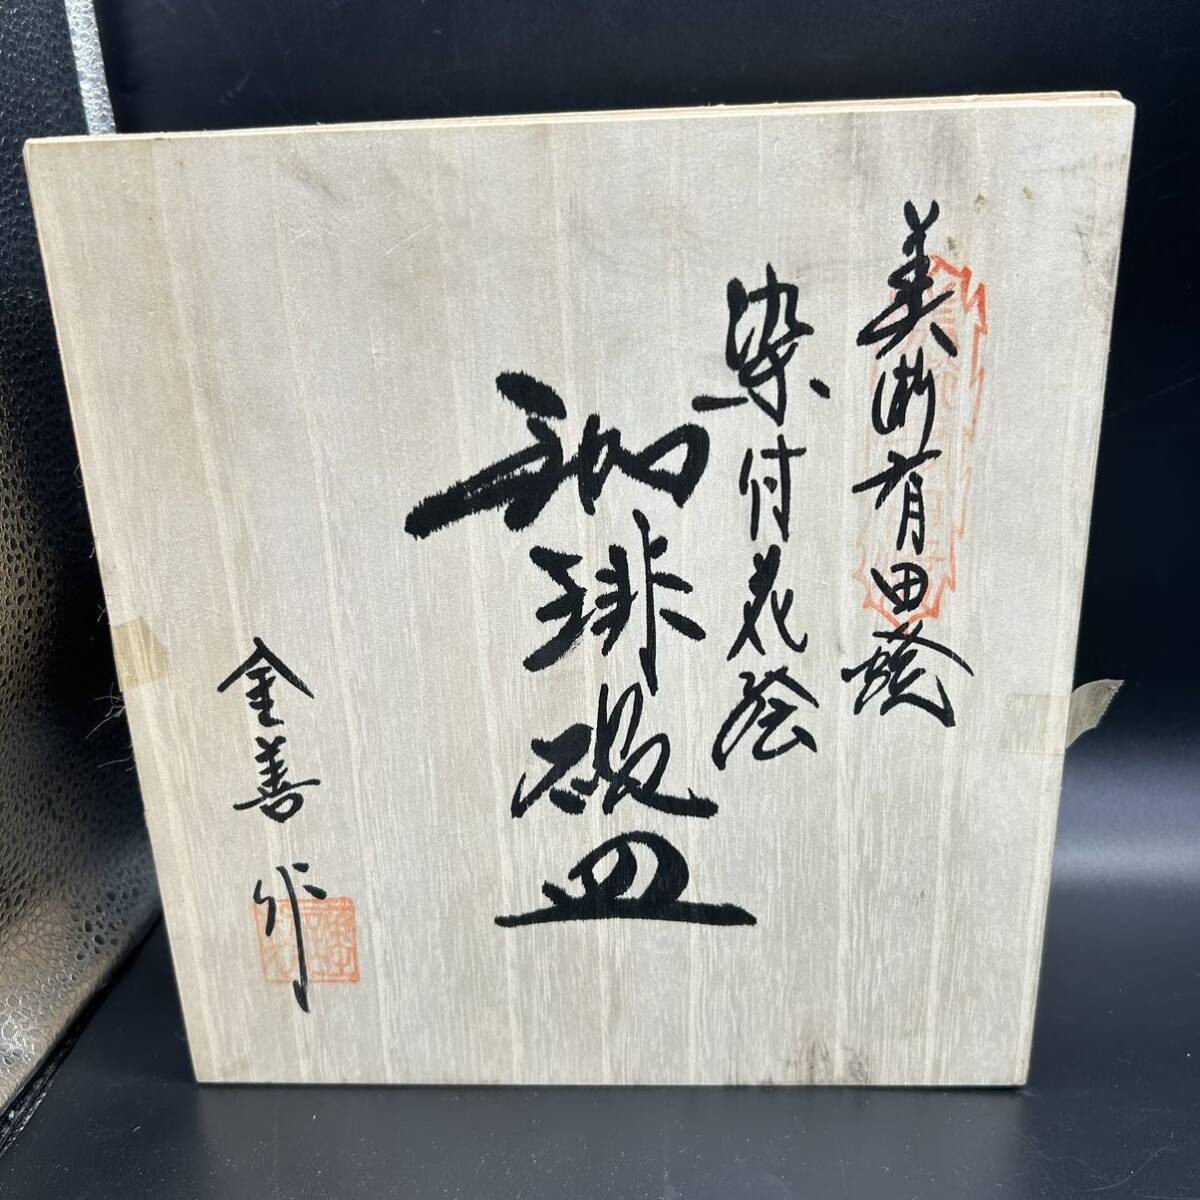 美術有田焼
染付花絵
珈琲碗皿
金善作